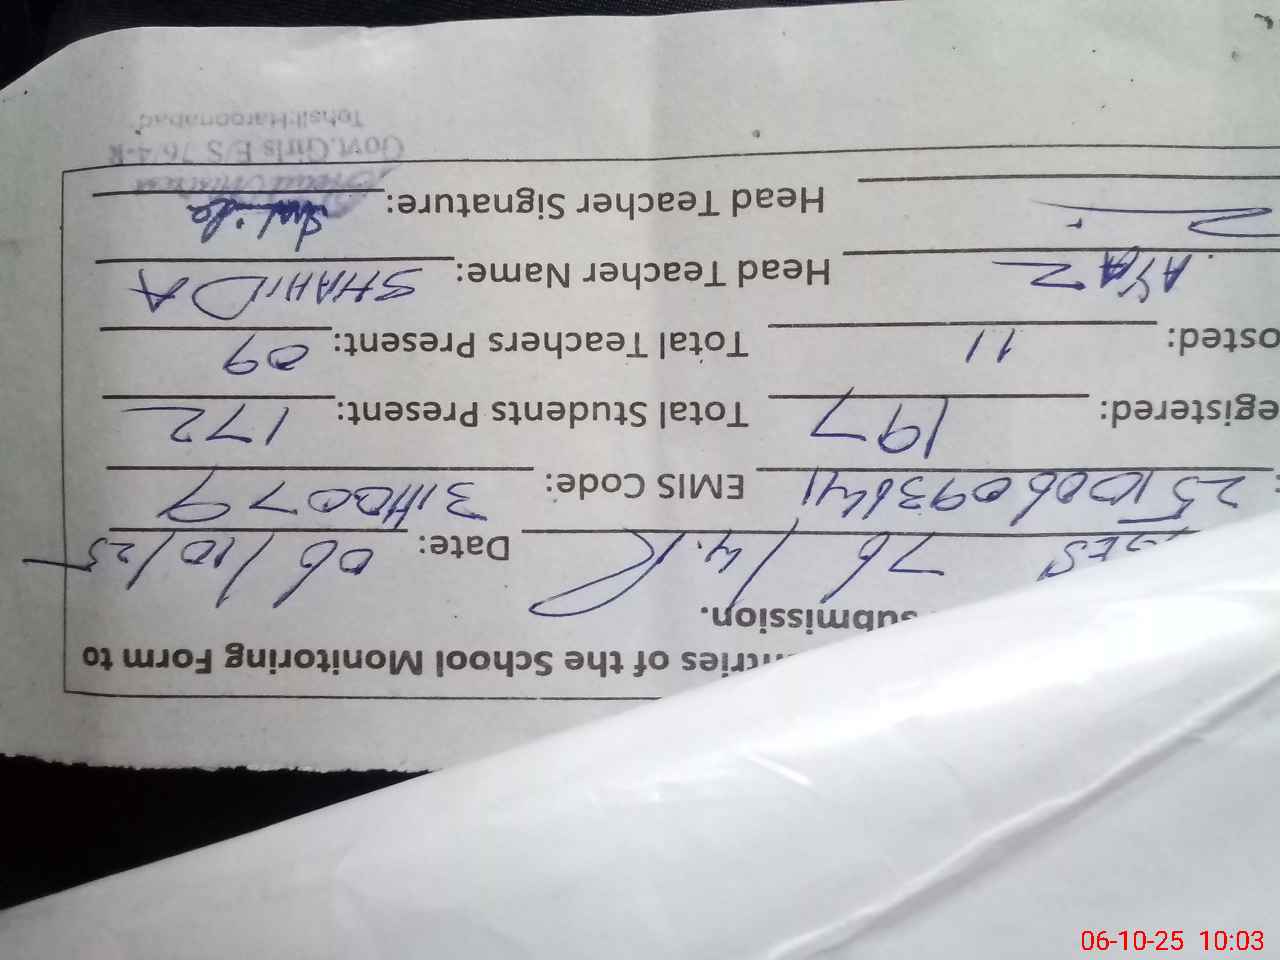 ntries of the School Monitoring Form to
submission.
GGES 76/4.R Date: 06/10/25
: 2510060936441 EMIS Code: 31110079
egistered: 197 Total Students Present: 172
osted: 11 Total Teachers Present: 09
AYAZ Head Teacher Name: SHAHIDA
Head Teacher Signature:
Head Mistress
Govt. Girls E/S 76/4-R
Tehsil: Haroonabad
06-10-25 10:03